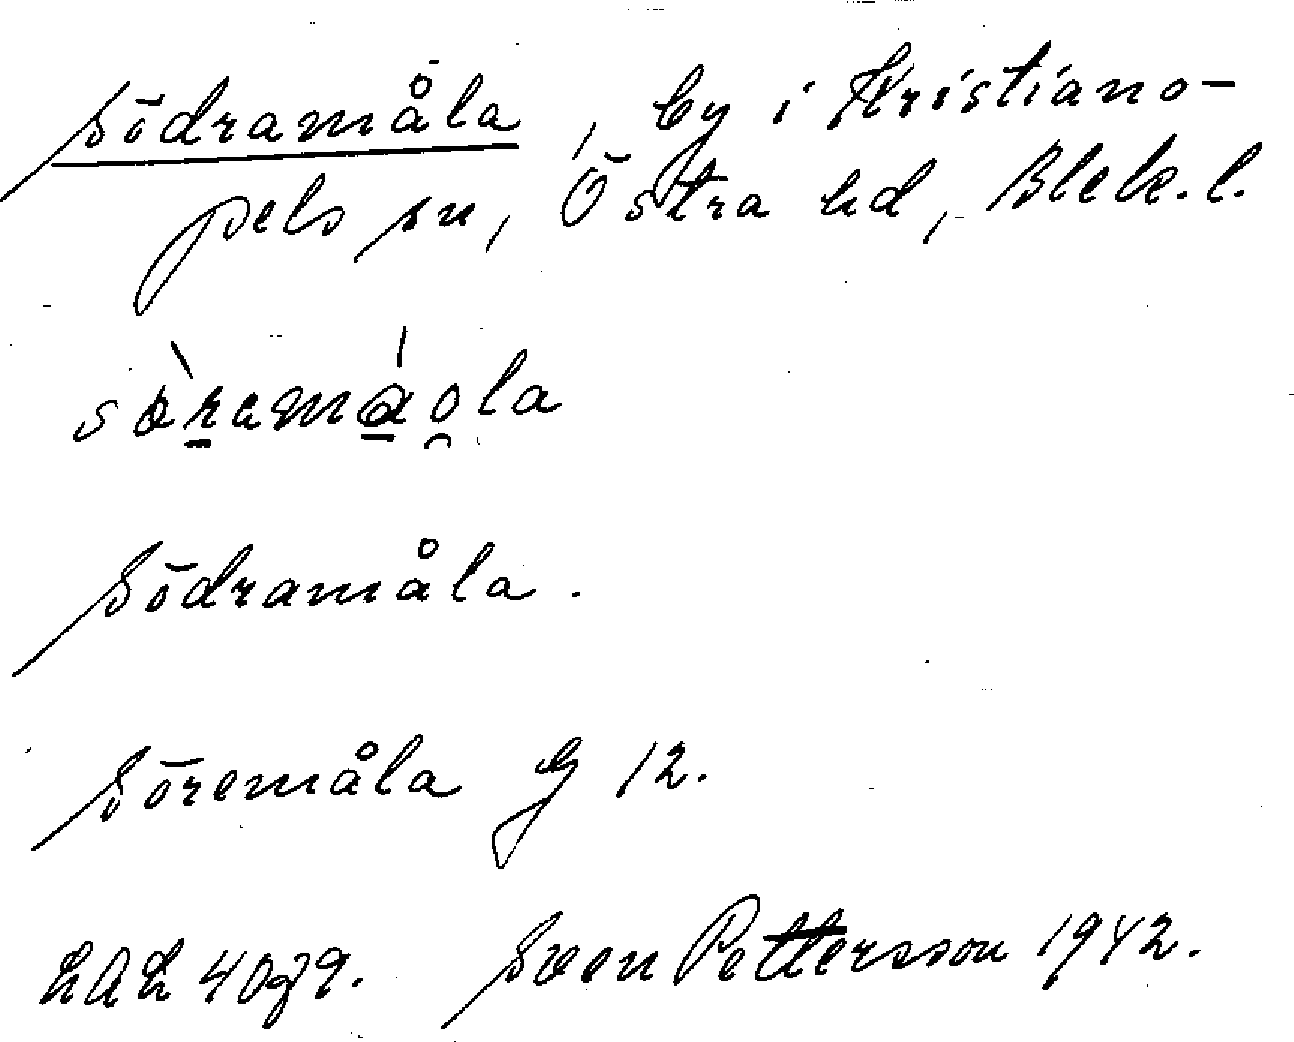 Södramåla, by i Kristiano-
pels sn, Östra hd, Blek. l.
sø̀ramáola
Södramåla.
Söremåla G 12.
LAL 4079. Sven Pettersson 1942.